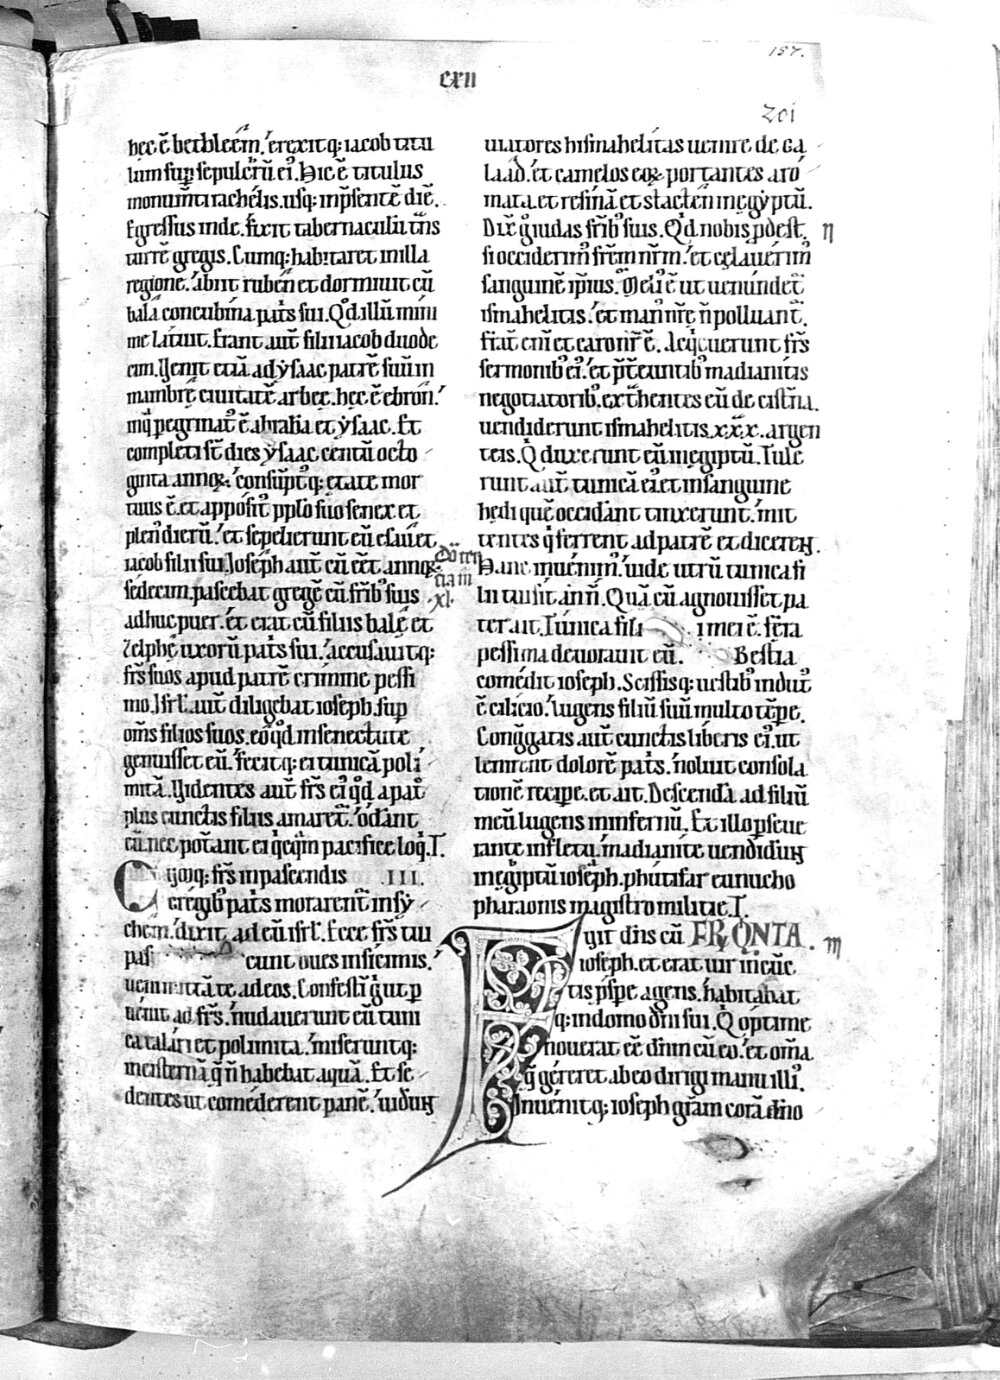 157.
cxii
201
hec ē bethleēm. erexitq; iacob titu
lum suꝑ sepulcrū ei᷒. Hic ē titulus
monum̄ti rachelis. usq; inp̄sentē diē.
Egressus inde. fixit tabernaculū t̄ns
turrē gregis. Cumq; habitaret in illa
regione. abiit ruben et dormiuit cū
bala concubina pat̄s sui. Qd̄ illū mini
me latuit. Erant aut̄ filii iacob duode
cim. Uenit etiā ad ẏsaac patrē suū in
mambrę ciuitatē arbee. hec ē ebron.
inq̄ pegrinat᷒ ē abraha et ẏsaac. Et
completi st̄ dies ẏsaac centū octo
ginta annoꝝ. consūptq; etate mor
tuus ē. et apposit᷒ pplo suo senex et
plen᷒ dierū. et sepelierunt eū esau et
iacob filii sui. Joseph aut̄ cū eēt annoꝝ
sedecim. pascebat gregē cū frib᷒ suis
adhuc puer. et erat cū filiis bale et
zelphę uxorū pat̄s sui. accusauitq;
fr̄s suos apud patrē crimine pessi
mo. Isrl̄ aut̄ diligebat ioseph suꝑ
om̄s filios suos. eo qd̄ in senectute
genuisset eū. fecitq; ei tunicā poli
mitā. Uidentes aut̄ fr̄s ei᷒ qd̄ a pat̄
plus cunctis filiis amaret᷒. oderant
eū nec pot̄ant ei qicqm pacifice loq̄. T.
Cūq; fr̄s in pascendis III.
gregib᷒ pat̄s morarent᷒ in sẏ
chem. dixit ad eū isrl̄. Ecce fr̄s tui
pas cunt oues in sicimis.
ueni mittā te ad eos. Confestī g̊ ut ꝑ
uenit ad fr̄s. nudauerunt eū tuni
ca talari et polimita. miseruntq;
in cisternā q̄ n̄ habebat aquā. Et se
dentes ut comederent panē. uider̄
uiatores hismahelitas uenire de ga
laad. et camelos eoꝝ portantes aro
mata et resinā et stacten in egẏptū.
Dix̄ g̊ iudas frīb᷒ suis. Qd̄ nobis ꝓdest.
si occiderim᷒ frēm nr̄m. et celauerim᷒
sanguinē ip̄ius. Meli᷒ ē ut uenundet᷒
ismahelitis. et man᷒ nr̄e n̄ polluant᷒.
frat̄ eni et caro nr̄ē. Acq̊euerunt fr̄s
sermonib᷒ ei᷒. et p̄t̄euntib᷒ madianitis
negotiatorib᷒. ext̄hentes eū de cist̄na.
uendiderunt ismahelitis. xxx. argen
teis. Q̄ duxerunt eū in egiptū. Tule
runt aut̄ tunicā ei᷒ et in sanguine
hedi quē occiderant tinxerunt. mit
tentes q̄ ferrent ad patrē et dicerent.
Hanc inuenim᷒. uide utrū tunica fi
lii tui sit an n̄. Quā cū agnouisset pa
ter. ait. Tunica fili i mei ē. fera
pessima deuorauit eū. Bestia
comedit ioseph. Scissisq; uestib᷒ indut᷒
ē cilicio. lugens filiū suū multo tēpe.
Cong̊gatis aut̄ cunctis liberis ei᷒. ut
lenirent dolorē pat̄s. noluit consola
tionē recipe. et ait. Descendā ad filiū
meū lugens in infernū. Et illo ꝑseue
rante in fletu. madianite uendider̄
in egiptū ioseph. phutifar eunucho
pharaonis magistro militie. T.
Igit᷒ dn̄s cū FR̄ ONTA.
ioseph. et erat uir in cūc
tis ꝓspe agens. habitabat
q; in domo dn̄i sui. Q̄ optime
nouerat eē dn̄m cū eo. et om̄a
q̄ gereret ab eo dirigi manu illi᷒.
Inuenitq; ioseph grām corā dn̄o